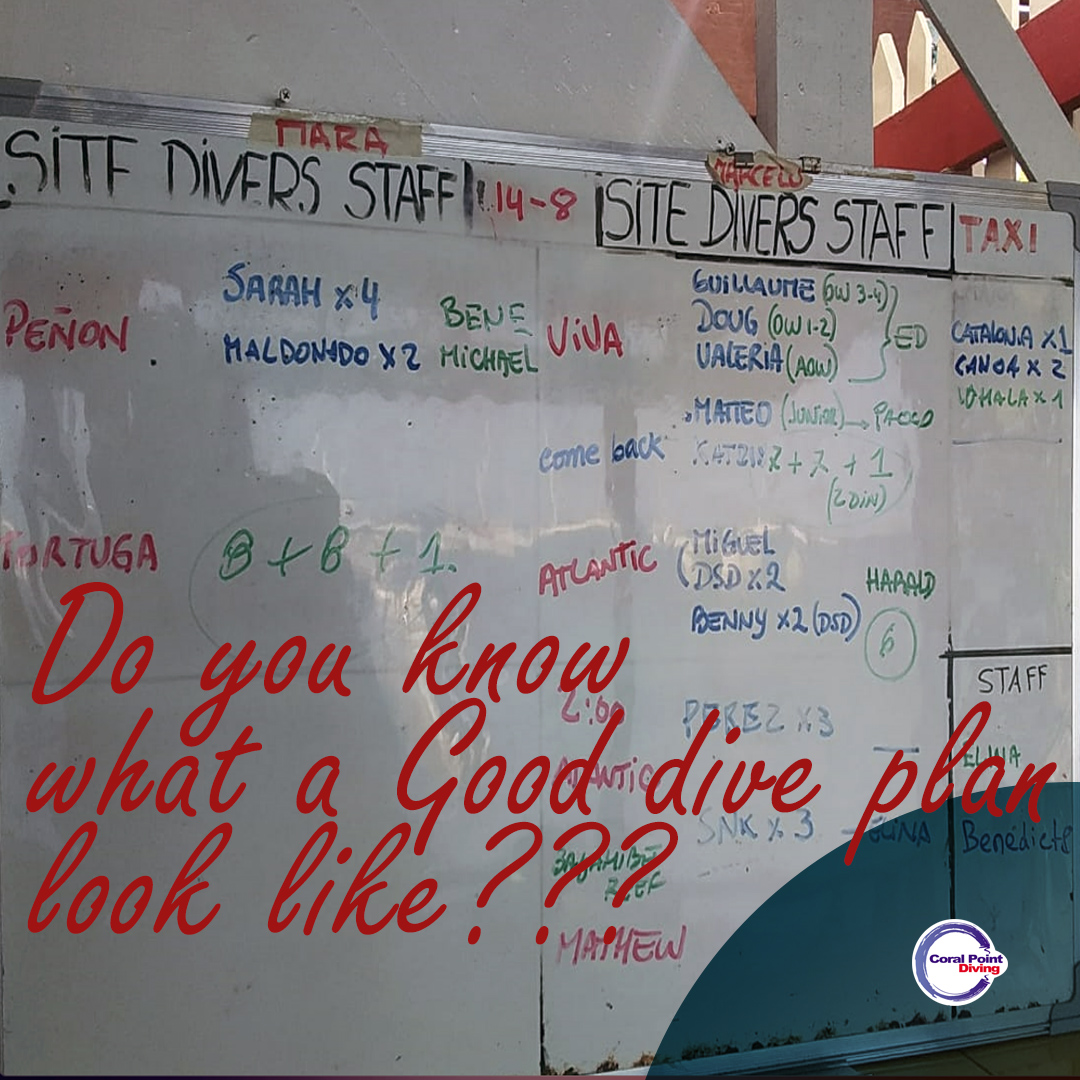 MARA
SITE DIVERS STAFF
14-8
PEÑON
SARAH x4
BENE
MALDONADO x2 MICHAEL
TORTUGA 8 + 8 + 1
MARCELO
SITE DIVERS STAFF
TAXI
GUILLAUME (OW 3-4)
VIVA DOUG (OW 1-2) ED
VALERIA (AOW)
MATTEO (JUNIOR) → PAOLO
come back + 1
MIGUEL
ATLANTIC DSD x2 HARALD
BENNY x2 (DSD) 6
2:00 PEREZ x3
ATLANTIC
SNK x 3 ELINA
REEF
MATHEW
CATALONIA x1
CANOA x 2
x 1
STAFF
Benedicte
Do you know
what a Good dive plan
look like???
Coral Point
Diving